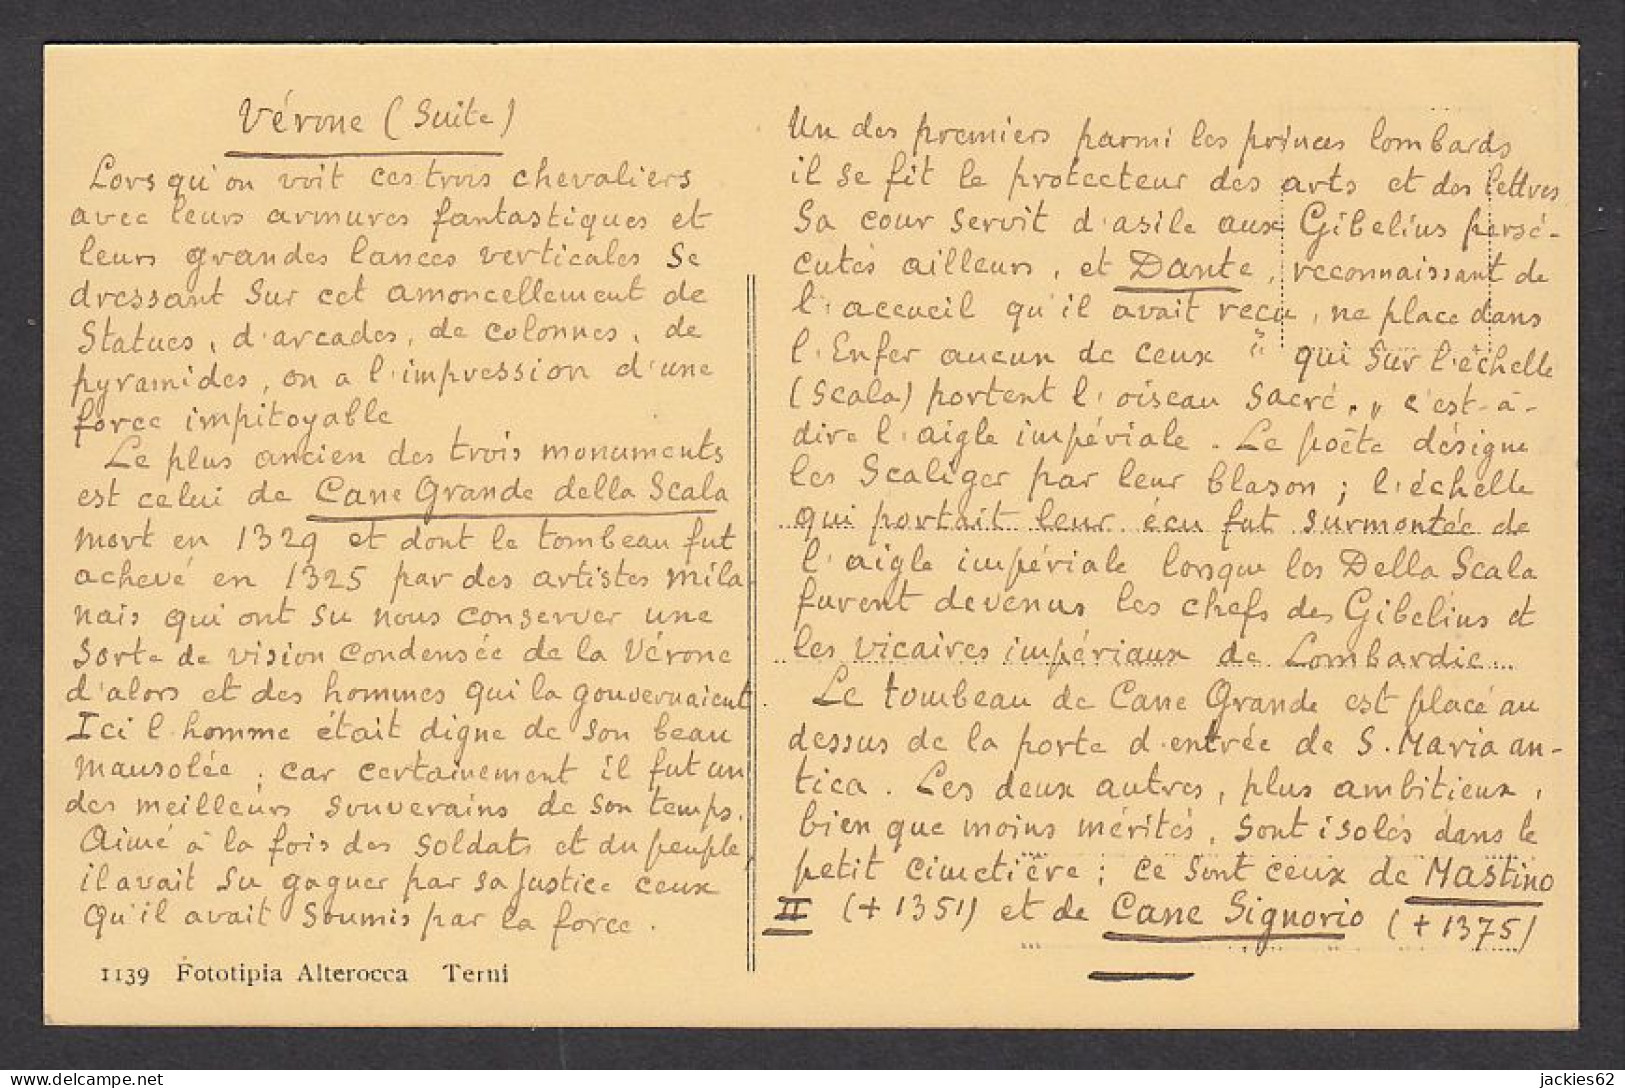 Vérone (Suite)
Lorsqu'on voit ces trois chevaliers
avec leurs armures fantastiques et
leurs grandes lances verticales se
dressant sur cet amoncellement de
statues, d'arcades, de colonnes, de
pyramides, on a l'impression d'une
force impitoyable
Le plus ancien des trois monuments
est celui de Cane Grande della Scala
mort en 1329 et dont le tombeau fut
achevé en 1325 par des artistes mila
nais qui ont su nous conserver une
sorte de vision condensée de la Vérone
d'alors et des hommes qui la gouvernaient.
Ici l'homme était digne de son beau
mausolée, car certainement il fut un
des meilleurs souverains de son temps.
Aimé à la fois des soldats et du peuple,
il avait su gagner par sa justice ceux
qu'il avait soumis par la force.
1139 Fototipia Alterocca Terni
Un des premiers parmi les princes lombards
il se fit le protecteur des arts et des lettres
Sa cour servit d'asile aux Gibelins persé-
cutés ailleurs, et Dante, reconnaissant de
l'accueil qu'il avait reçu, ne place dans
l'Enfer aucun de ceux " qui sur l'échelle
(Scala) portent l'oiseau sacré. " c'est-à-
dire l'aigle impériale. Le poète désigne
les Scaliger par leur blason ; l'échelle
qui portait leur écu fut surmontée de
l'aigle impériale lorsque les Della Scala
furent devenus les chefs des Gibelins et
les vicaires impériaux de Lombardie...
Le tombeau de Cane Grande est placé au
dessus de la porte d'entrée de S. Maria an-
tica. Les deux autres, plus ambitieux,
bien que moins mérités, sont isolés dans le
petit cimetière ; ce sont ceux de Mastino
II (+ 1351) et de Cane Signorio (+ 1375)
jackies62